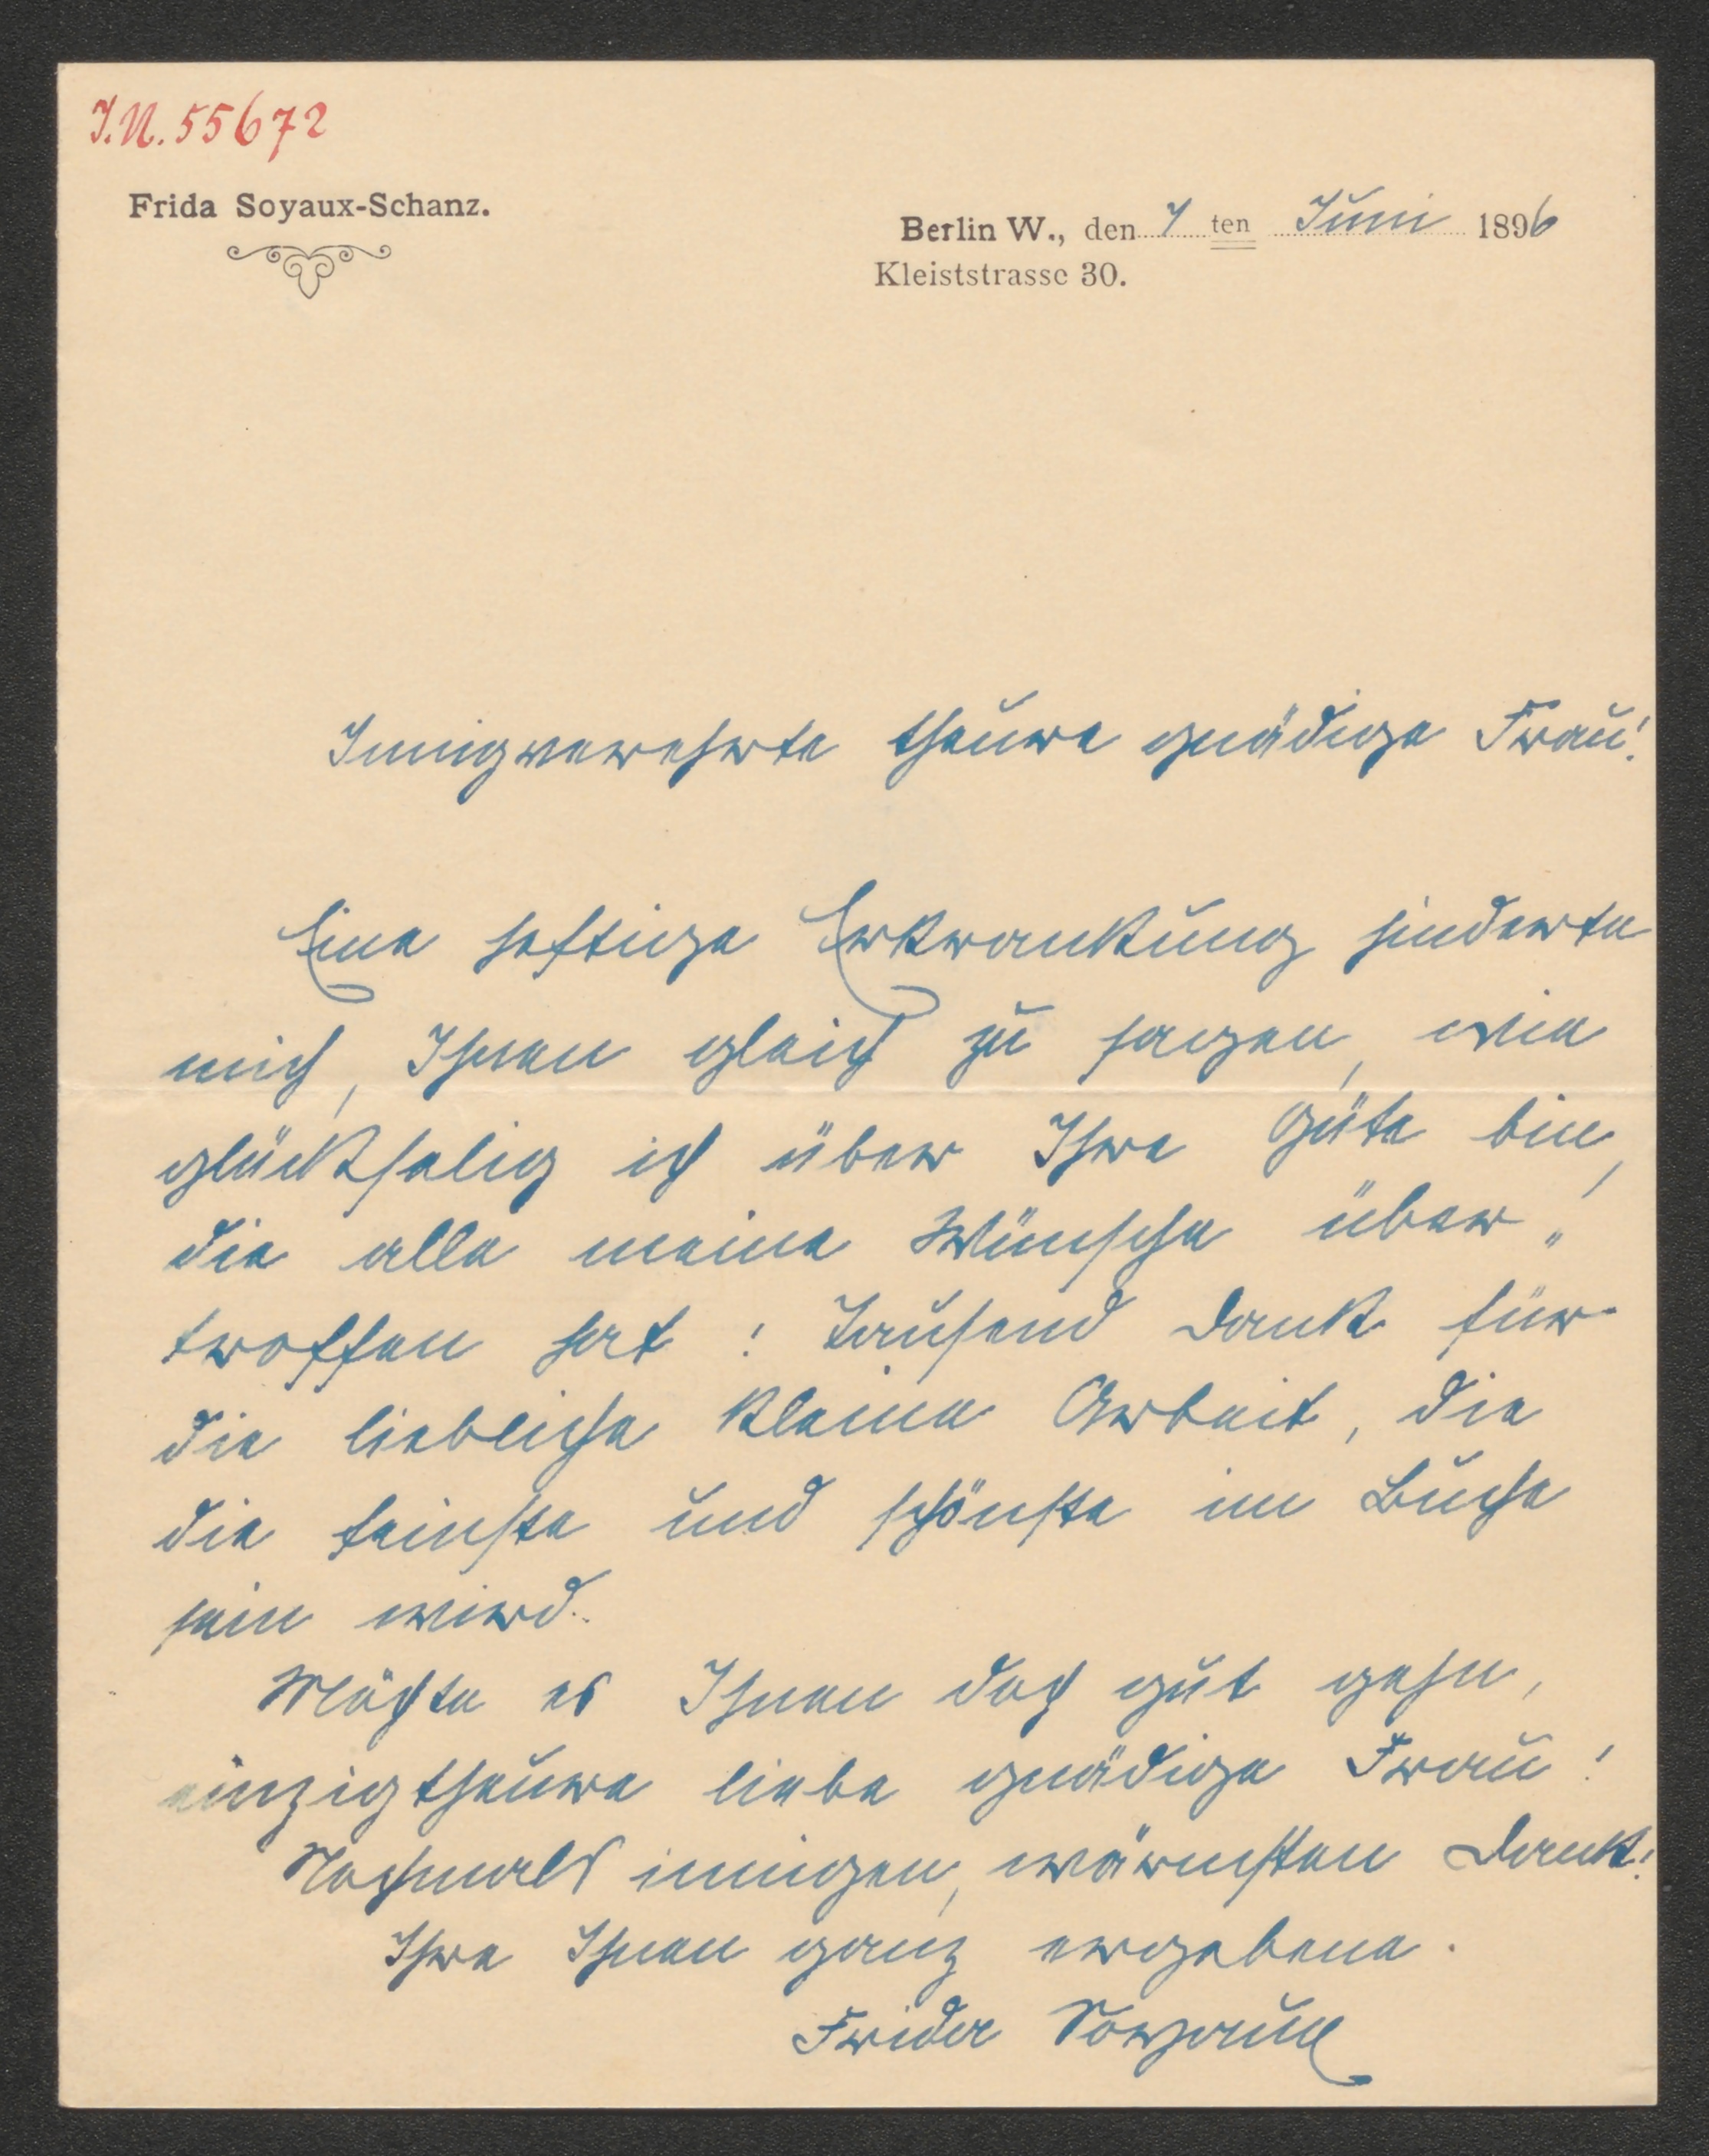 I.N. 55672
Frida Soyaux-Schanz.
Berlin W., den 7 ten Juni 1896
Kleiststrasse 30.
Innigverehrte theure gnädige Frau!
Eine heftige Erkrankung hinderte
mich, Ihnen gleich zu sagen, wie
glückselig ich über Ihre Güte bin,
die alle meine Wünsche über„
troffen hat! Tausend Dank für
die liebliche kleine Arbeit, die
die feinste und schönste im Buche
sein wird.
Möchte es Ihnen doch gut gehn,
einzigtheure liebe gnädige Frau!
Nochmals innigen, wärmsten Dank!
Ihre Ihnen ganz ergebene.
Frida Soyaux